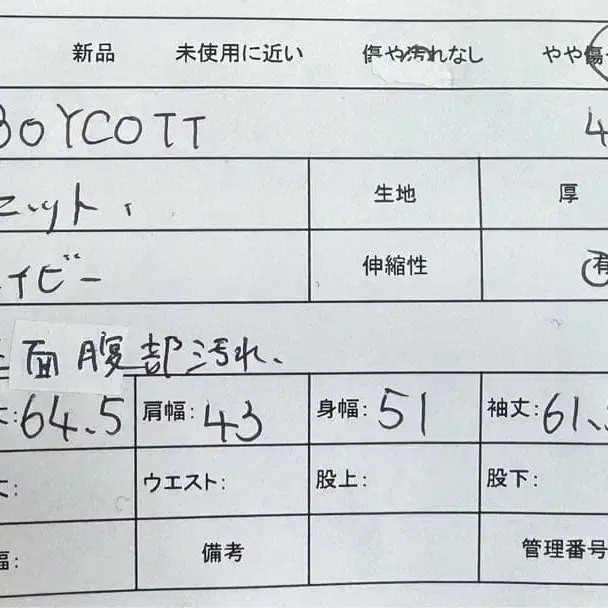 新品 未使用に近い 傷や汚れなし やや傷
BOYCOTT 4
ニット 生地 厚
ネイビー 伸縮性 有
面腹部汚れ、
丈:64.5 肩幅:43 身幅:51 袖丈:61.
丈: ウエスト: 股上: 股下:
幅: 備考 管理番号